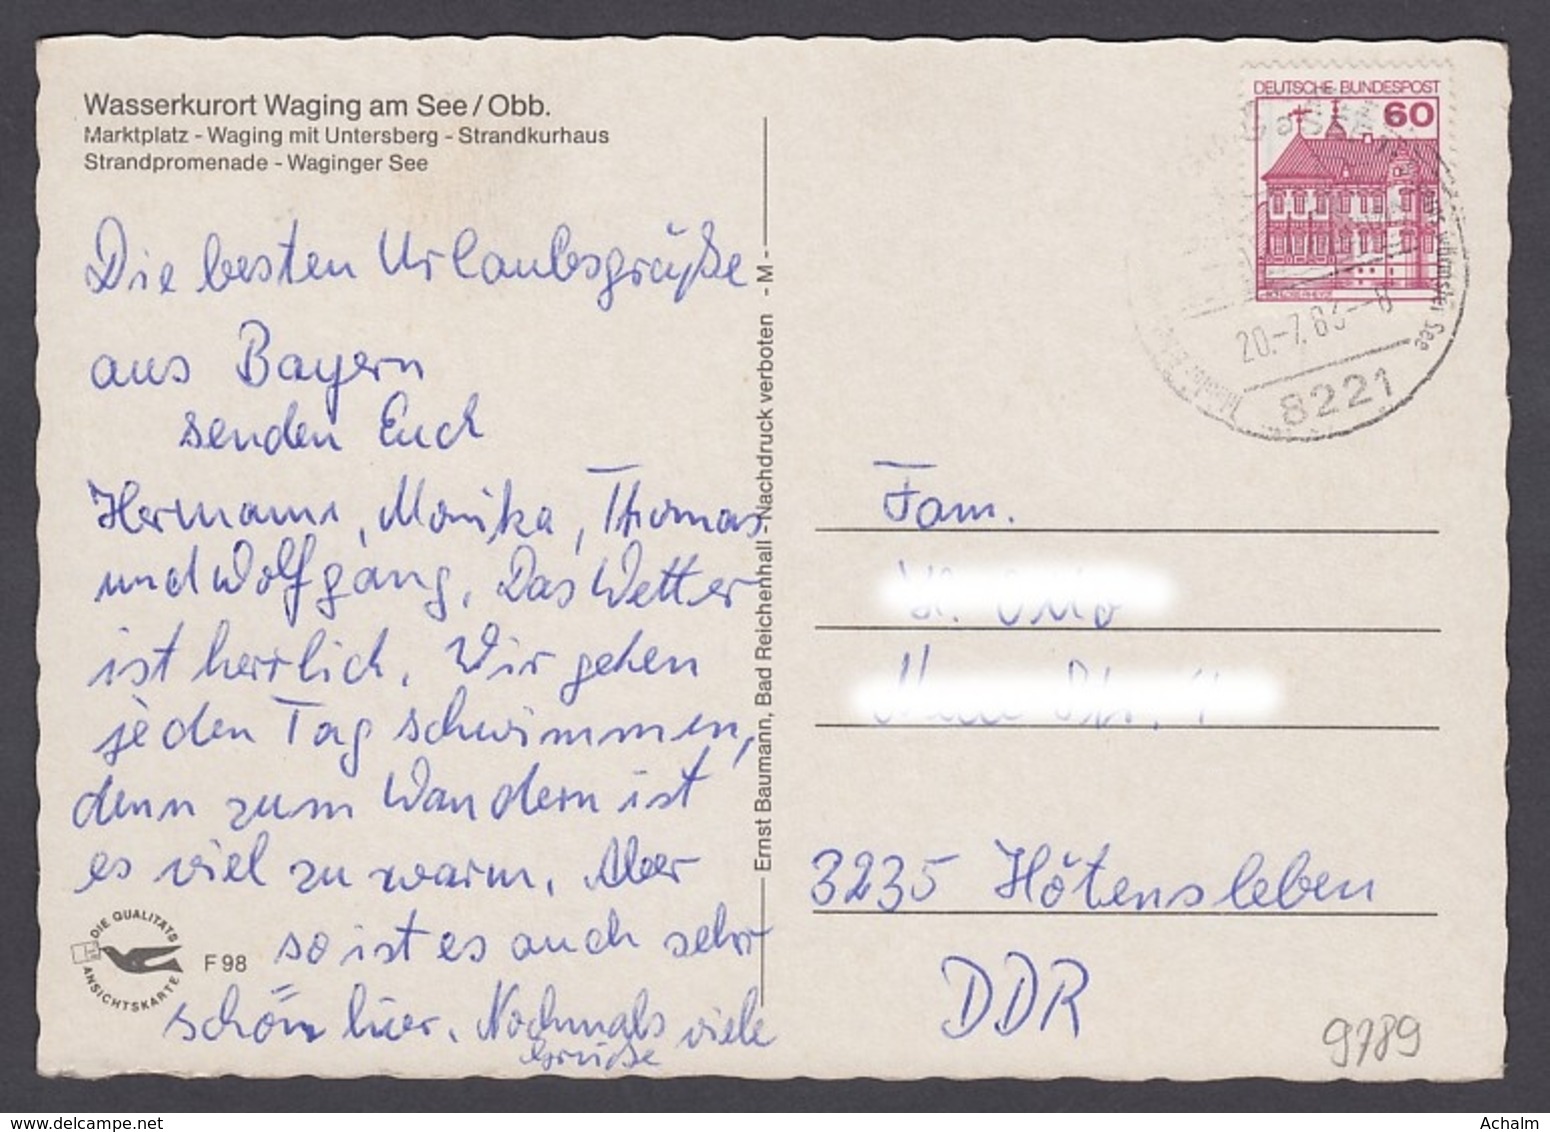 Wasserkurort Waging am See / Obb.
Marktplatz - Waging mit Untersberg - Strandkurhaus
Strandpromenade - Waginger See
Die besten Urlaubsgrüße
aus Bayern
senden Euch
Hermann, Monika, Thomas
und Wolfgang. Das Wetter
ist herrlich. Wir gehen
jeden Tag schwimmen,
denn zum Wandern ist
es viel zu warm. Aber
so ist es auch sehr
schön hier. Nochmals viele
Grüße
DIE QUALITÄTS
ANSICHTSKARTE
F 98
Ernst Baumann, Bad Reichenhall - Nachdruck verboten - M -
DEUTSCHE BUNDESPOST
60
20.-7.83-8
See
8221
Fam.
3235 Hötensleben
DDR
9789
Achalm